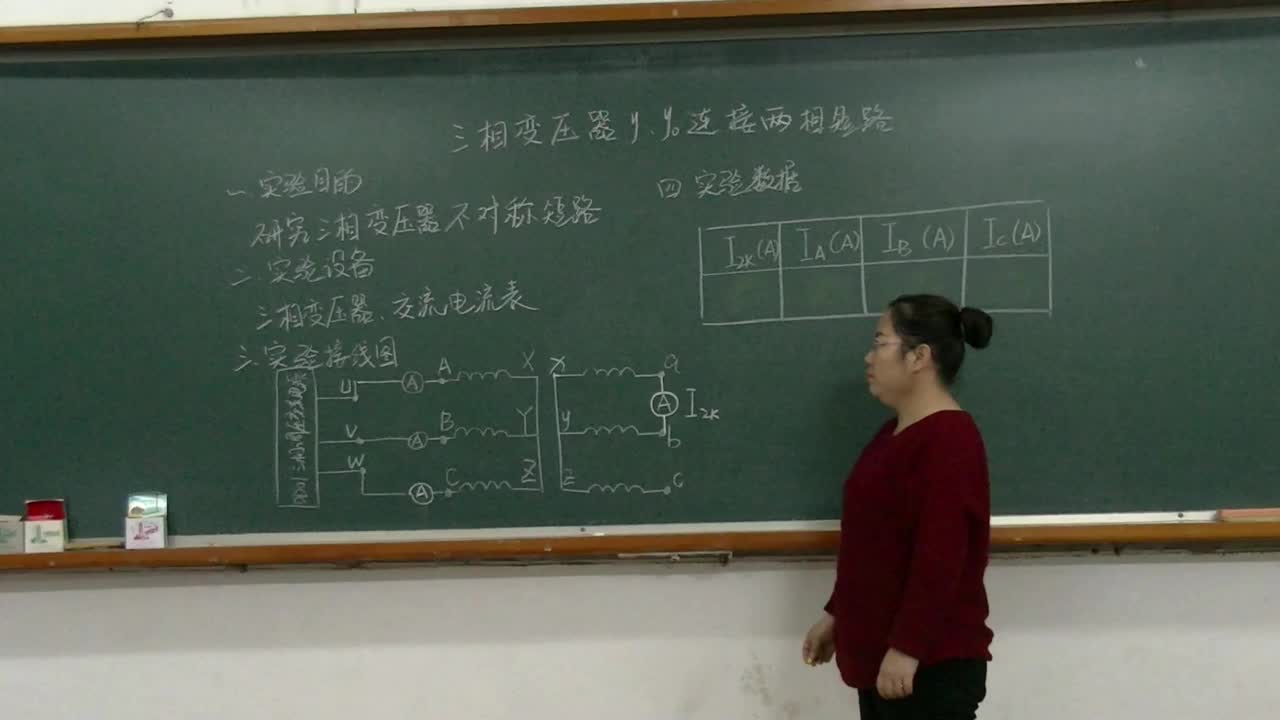 三相变压器Y.y₀连接两相短路
一 实验目的
研究三相变压器不对称短路
二 实验设备
三相变压器、交流电流表
三 实验接线图
四 实验数据
I₂ₖ(A) I_A(A) I_B(A) I_C(A)
U A A X x a
A I₂ₖ
V A B Y y b
W
A C Z z c